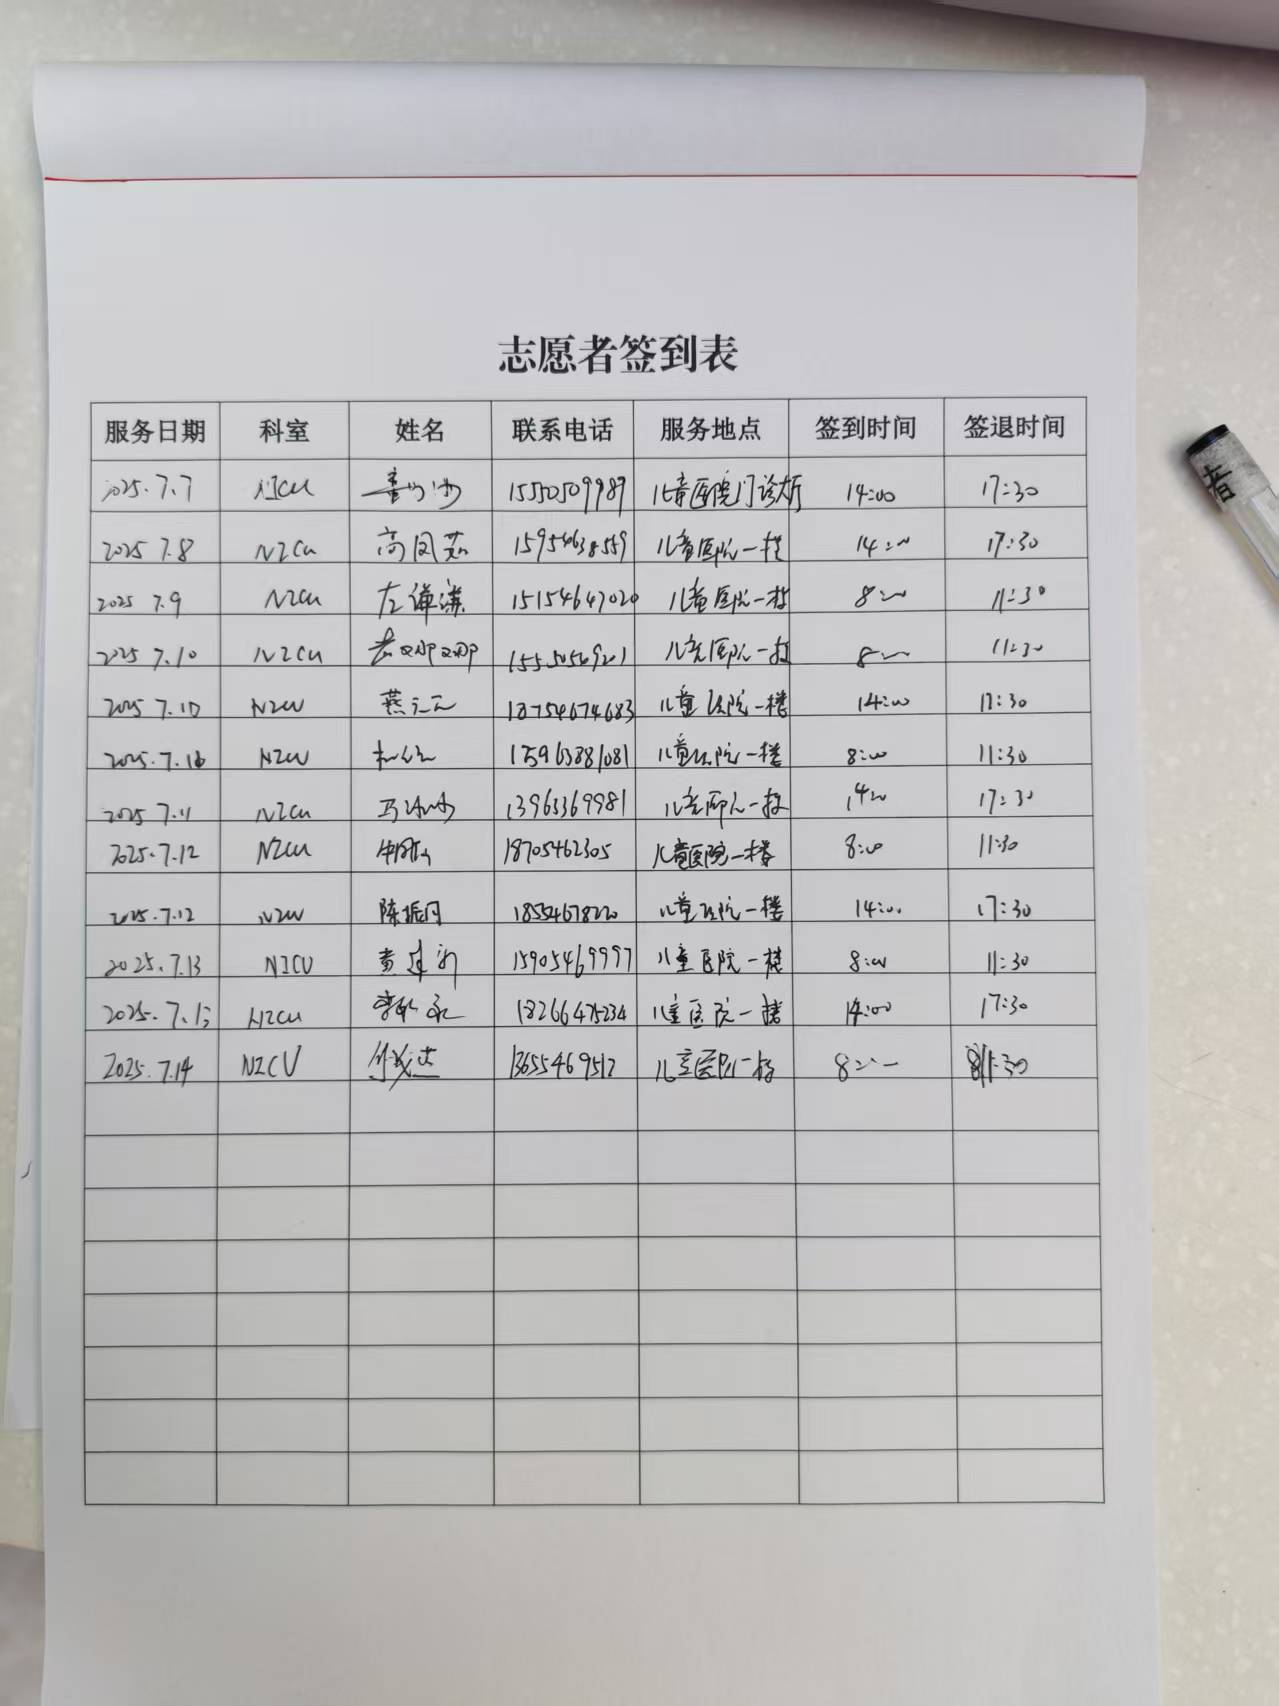 志愿者签到表
服务日期 科室 姓名 联系电话 服务地点 签到时间 签退时间
2025.7.7 NICU 15550509989 儿童医院门诊大厅 14:00 17:30
2025 7.8 NICU 高凤茹 15954638559 儿童医院一楼 14:00 17:30
2025 7.9 NICU 左谦谦 15154647020 儿童医院一楼 8:00 11:30
2025 7.10 NICU 娜娜 儿童医院一楼 8:00 11:30
2025 7.10 NICU 燕元元 18754674683 儿童医院一楼 14:00 17:30
2025.7.1 NICU 儿童医院一楼 8:00 11:30
2025 7.11 NICU 13963369981 儿童医院一楼 14:00 17:30
2025.7.12 NICU 18705462305 儿童医院一楼 8:00 11:30
2025.7.12 NICU 陈振国 18554678220 儿童医院一楼 14:00 17:30
2025.7.13 NICU 黄建新 15905469997 儿童医院一楼 8:00 11:30
2025.7.13 NICU 18266475234 儿童医院一楼 14:00 17:30
2025.7.14 NICU 13655469512 儿童医院一楼 8:00 11:30
者